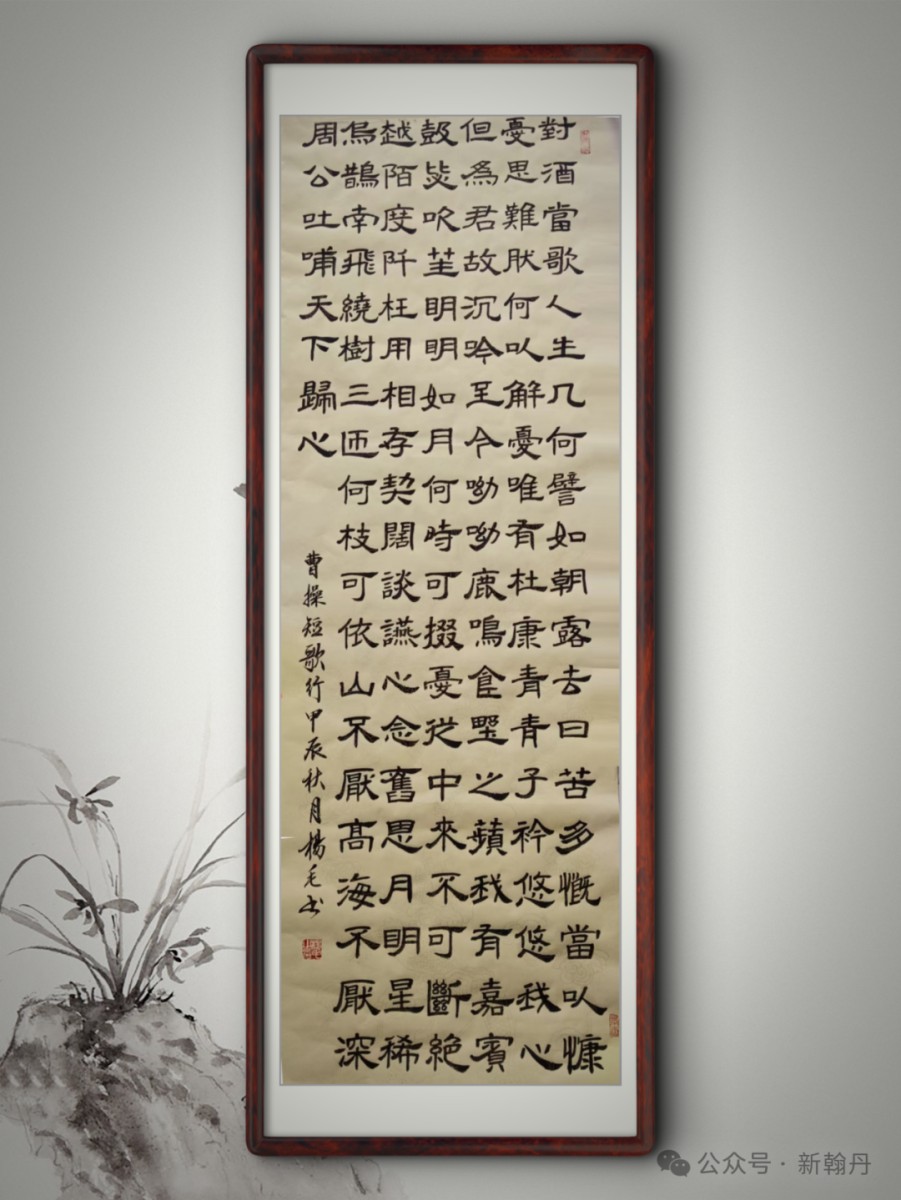 對酒當歌人生几何譬如朝露去曰苦多慨當以慷
憂思難肰何以解憂唯有杜康青青子衿悠悠我心
但為君故沉吟至今呦呦鹿鳴食埜之蘋我有嘉賓
鼓瑟吹笙明明如月何時可掇憂從中來不可斷絕
越陌度阡枉用相存契闊談讌心念舊恩月明星稀
烏鵲南飛繞樹三匝何枝可依山不厭高海不厭深
周公吐哺天下歸心
曹操短歌行甲辰秋月楊毛书
公众号·新翰丹